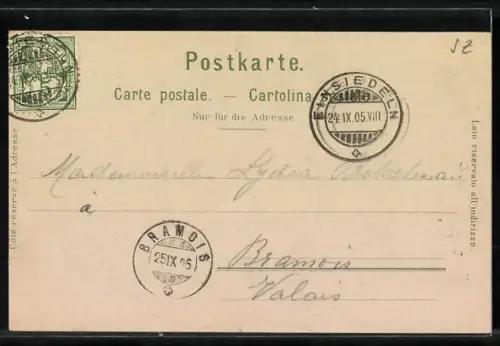 SZ
Postkarte.
Carte postale. — Cartolina
Nur für die Adresse.
EINSIEDELN
24.IX.05.VIII
Côté réservé à l'Adresse.
Lato riservato all'indirizzo.
Mademoiselle Lydia
à
BRAMOIS
25 IX 05
Bramois
Valais